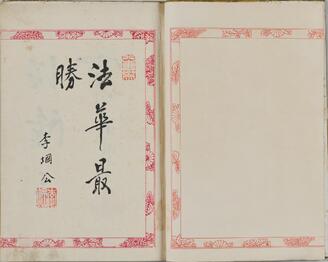 法華最
勝
李堈公